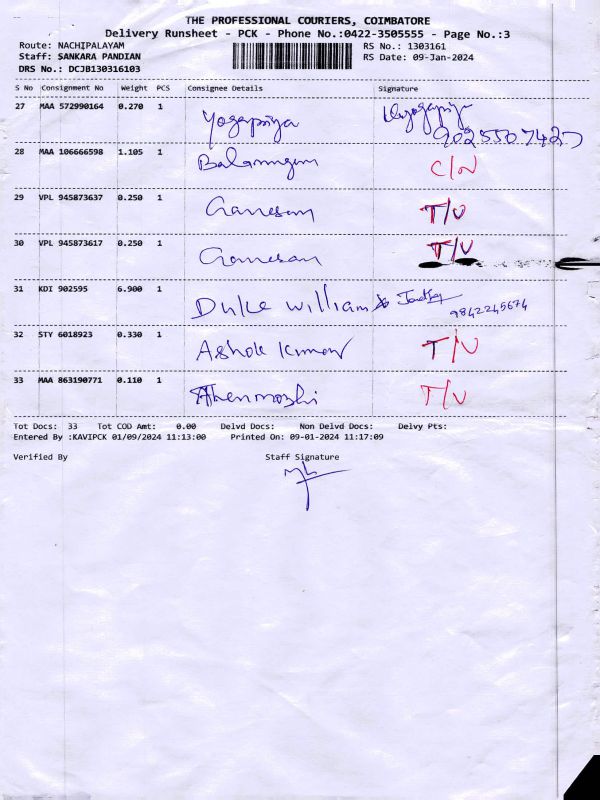 THE PROFESSIONAL COURIERS, COIMBATORE
Delivery Runsheet - PCK - Phone No.:0422-3505555 - Page No.:3
Route: NACHIPALAYAM RS No.: 1303161
Staff: SANKARA PANDIAN RS Date: 09-Jan-2024
DRS No.: DCJB130316103
S No Consignment No Weight PCS Consignee Details Signature
27 MAA 572990164 0.270 1 Yogapriya
9025507427
28 MAA 106666598 1.105 1 Balamurugan C/N
29 VPL 945873637 0.250 1 Ganesan T/V
30 VPL 945873617 0.250 1 Ganesan T/V
31 KDI 902595 6.900 1 Duke William 9842245674
32 STY 6018923 0.330 1 Ashok Kumar T/V
33 MAA 863190771 0.110 1 Thenmozhi T/V
Tot Docs: 33 Tot COD Amt: 0.00 Delvd Docs: Non Delvd Docs: Delvy Pts:
Entered By :KAVIPCK 01/09/2024 11:13:00 Printed On: 09-01-2024 11:17:09
Verified By Staff Signature